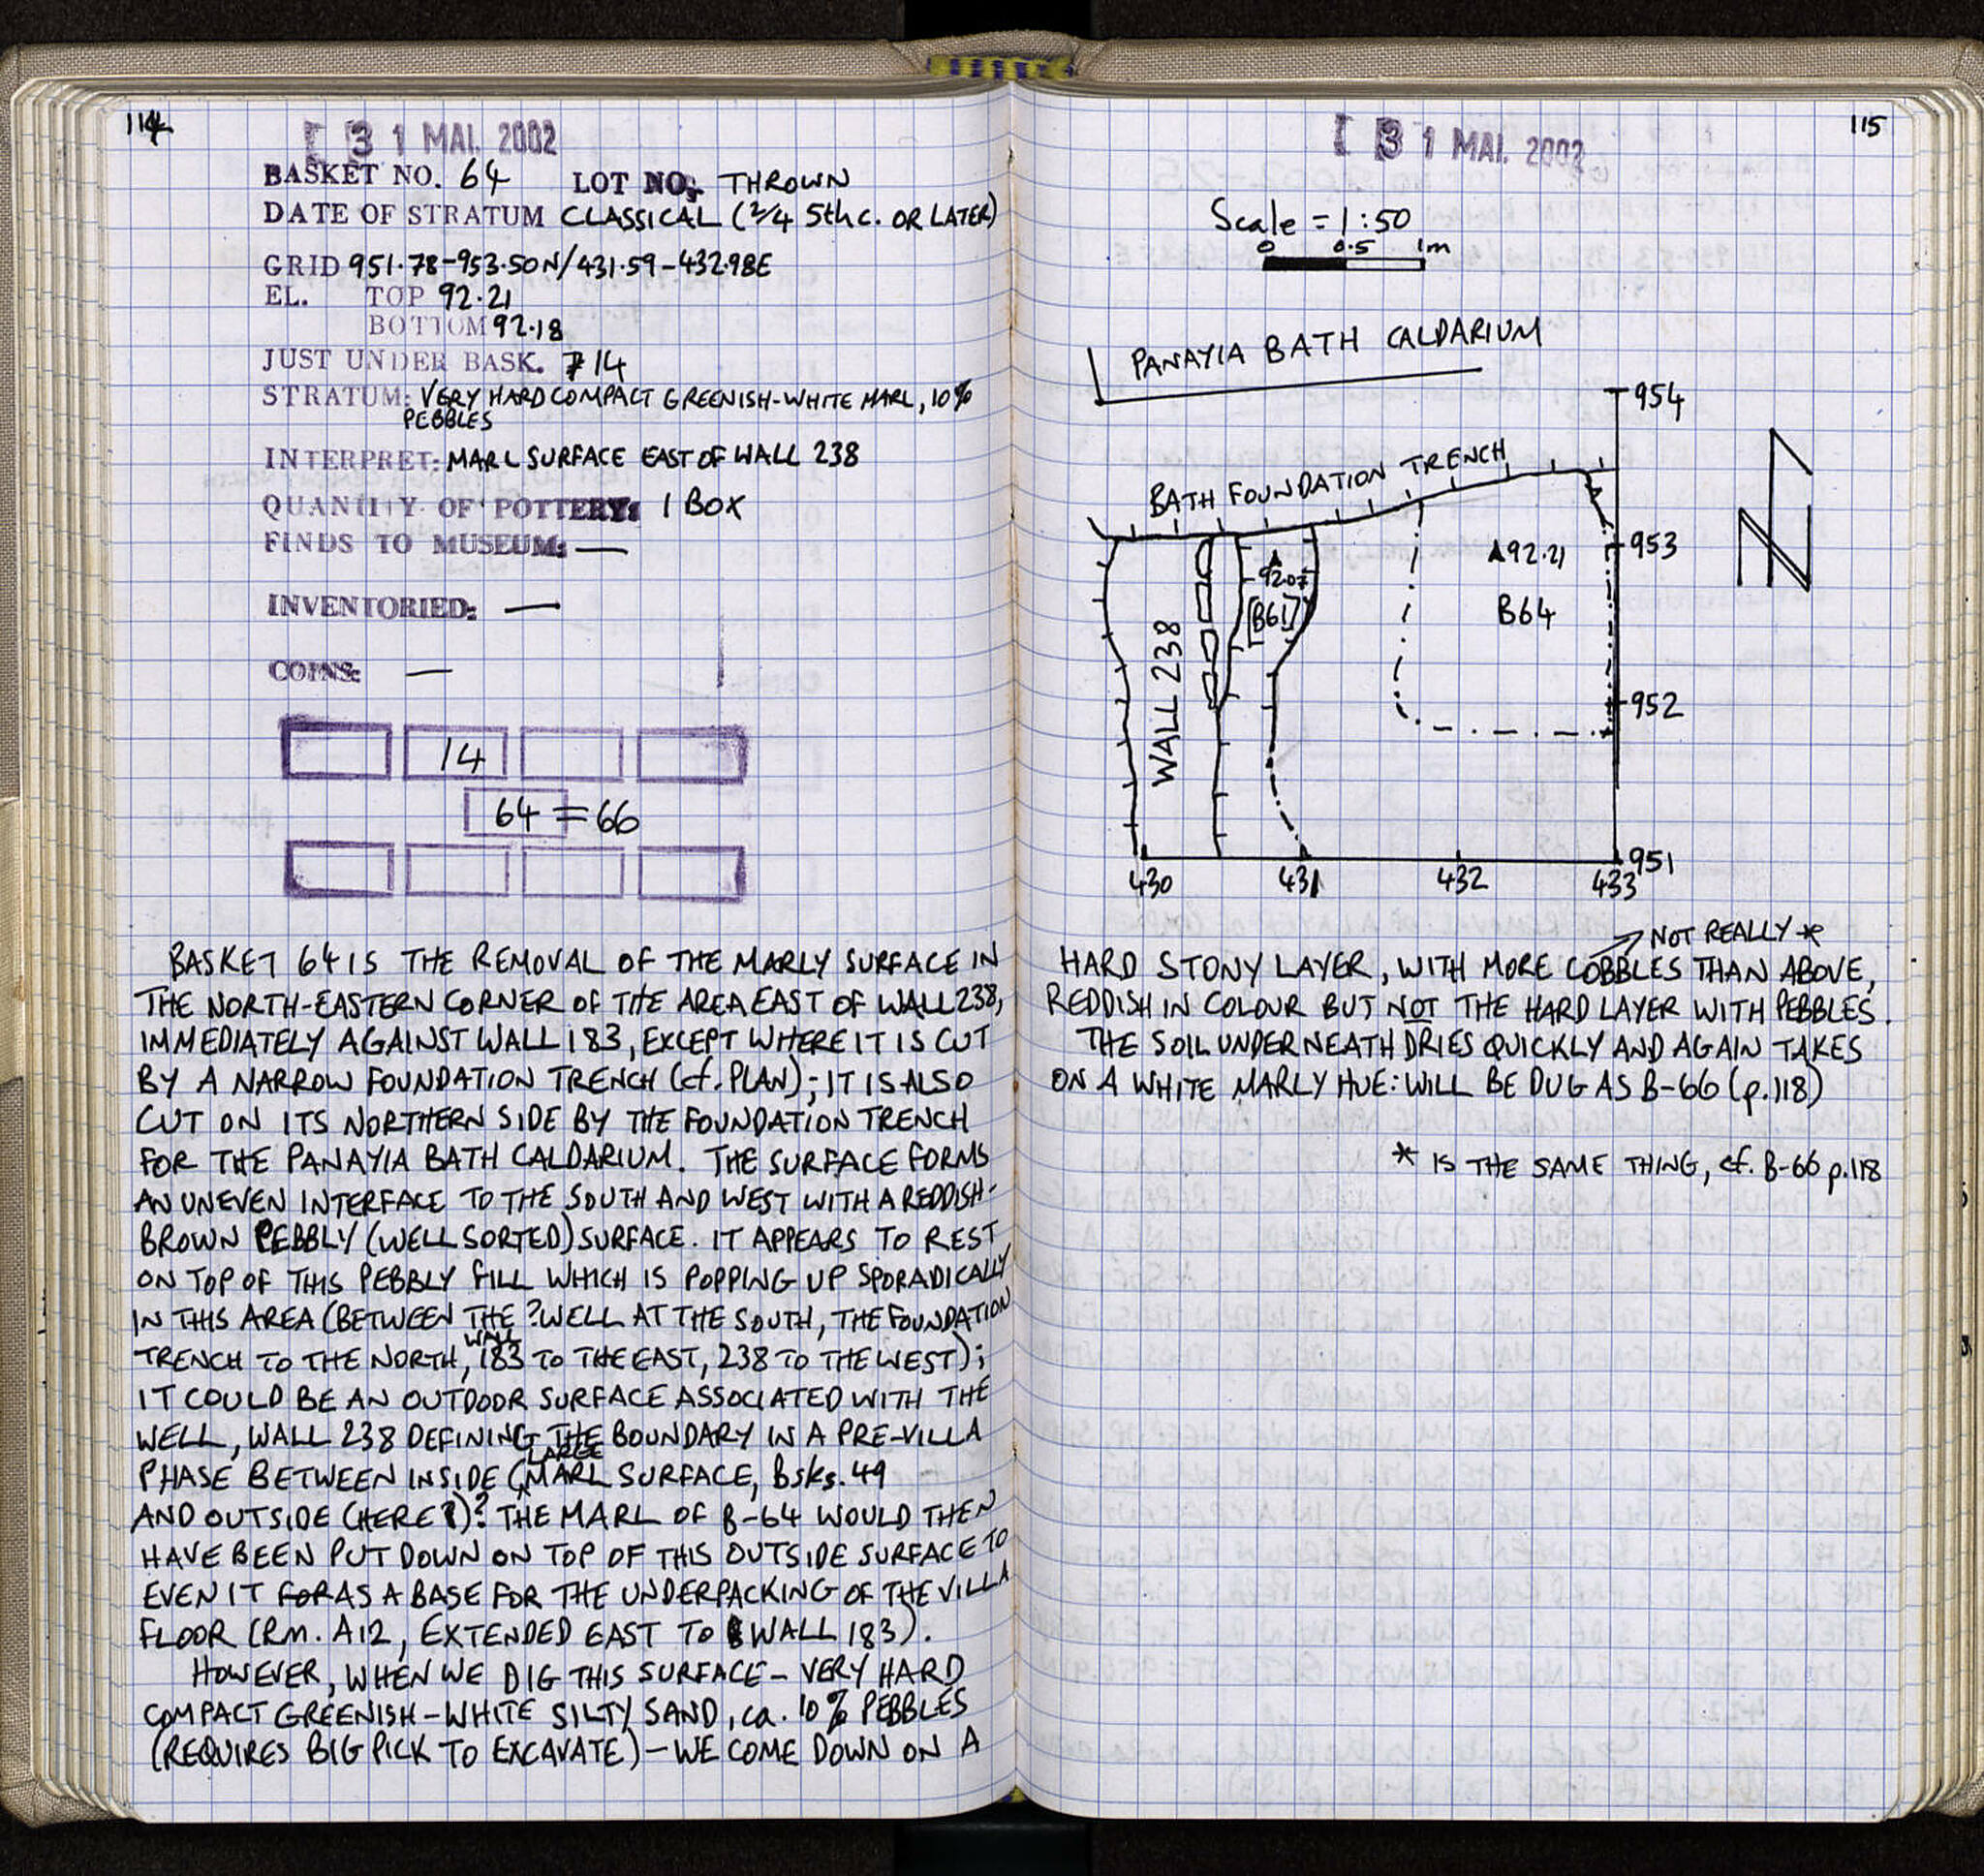 114
31 MAI 2002
BASKET NO. 64 LOT NO. THROWN
DATE OF STRATUM CLASSICAL (2/4 5th c. OR LATER)
GRID 951.78-953.50N/431.59-432.98E
EL. TOP 92.21
BOTTOM 92.18
JUST UNDER BASK. 14
STRATUM: VERY HARD COMPACT GREENISH-WHITE MARL, 10%
PEBBLES
INTERPRET: MARL SURFACE EAST OF WALL 238
QUANTITY OF POTTERY: 1 BOX
FINDS TO MUSEUM: —
INVENTORIED: —
COINS: —
14
64 = 66
BASKET 64 IS THE REMOVAL OF THE MARLY SURFACE IN
THE NORTH-EASTERN CORNER OF THE AREA EAST OF WALL 238,
IMMEDIATELY AGAINST WALL 183, EXCEPT WHERE IT IS CUT
BY A NARROW FOUNDATION TRENCH (cf. PLAN); IT IS ALSO
CUT ON ITS NORTHERN SIDE BY THE FOUNDATION TRENCH
FOR THE PANAYIA BATH CALDARIUM. THE SURFACE FORMS
AN UNEVEN INTERFACE TO THE SOUTH AND WEST WITH A REDDISH-
BROWN PEBBLY (WELL SORTED) SURFACE. IT APPEARS TO REST
ON TOP OF THIS PEBBLY FILL WHICH IS POPPING UP SPORADICALLY
IN THIS AREA (BETWEEN THE ?WELL AT THE SOUTH, THE FOUNDATION
TRENCH TO THE NORTH, WALL 183 TO THE EAST, 238 TO THE WEST);
IT COULD BE AN OUTDOOR SURFACE ASSOCIATED WITH THE
WELL, WALL 238 DEFINING THE BOUNDARY IN A PRE-VILLA
PHASE BETWEEN INSIDE (LARGE MARL SURFACE, Bsks. 49
AND OUTSIDE (HERE)? THE MARL OF B-64 WOULD THEN
HAVE BEEN PUT DOWN ON TOP OF THIS OUTSIDE SURFACE TO
EVEN IT FOR AS A BASE FOR THE UNDERPACKING OF THE VILLA
FLOOR (Rm. A12, EXTENDED EAST TO WALL 183).
HOWEVER, WHEN WE DIG THIS SURFACE - VERY HARD
COMPACT GREENISH-WHITE SILTY SAND, ca. 10% PEBBLES
(REQUIRES BIG PICK TO EXCAVATE) - WE COME DOWN ON A
115
31 MAI 2002
Scale = 1:50
0 0.5 1m
PANAYIA BATH CALDARIUM
954
BATH FOUNDATION TRENCH
953
92.21
92.07
B64
[B61]
WALL 238
952
951
430 431 432 433
NOT REALLY *
HARD STONY LAYER, WITH MORE COBBLES THAN ABOVE,
REDDISH IN COLOUR BUT NOT THE HARD LAYER WITH PEBBLES.
THE SOIL UNDERNEATH DRIES QUICKLY AND AGAIN TAKES
ON A WHITE MARLY HUE: WILL BE DUG AS B-66 (p.118)
* IS THE SAME THING, cf. B-66 p.118